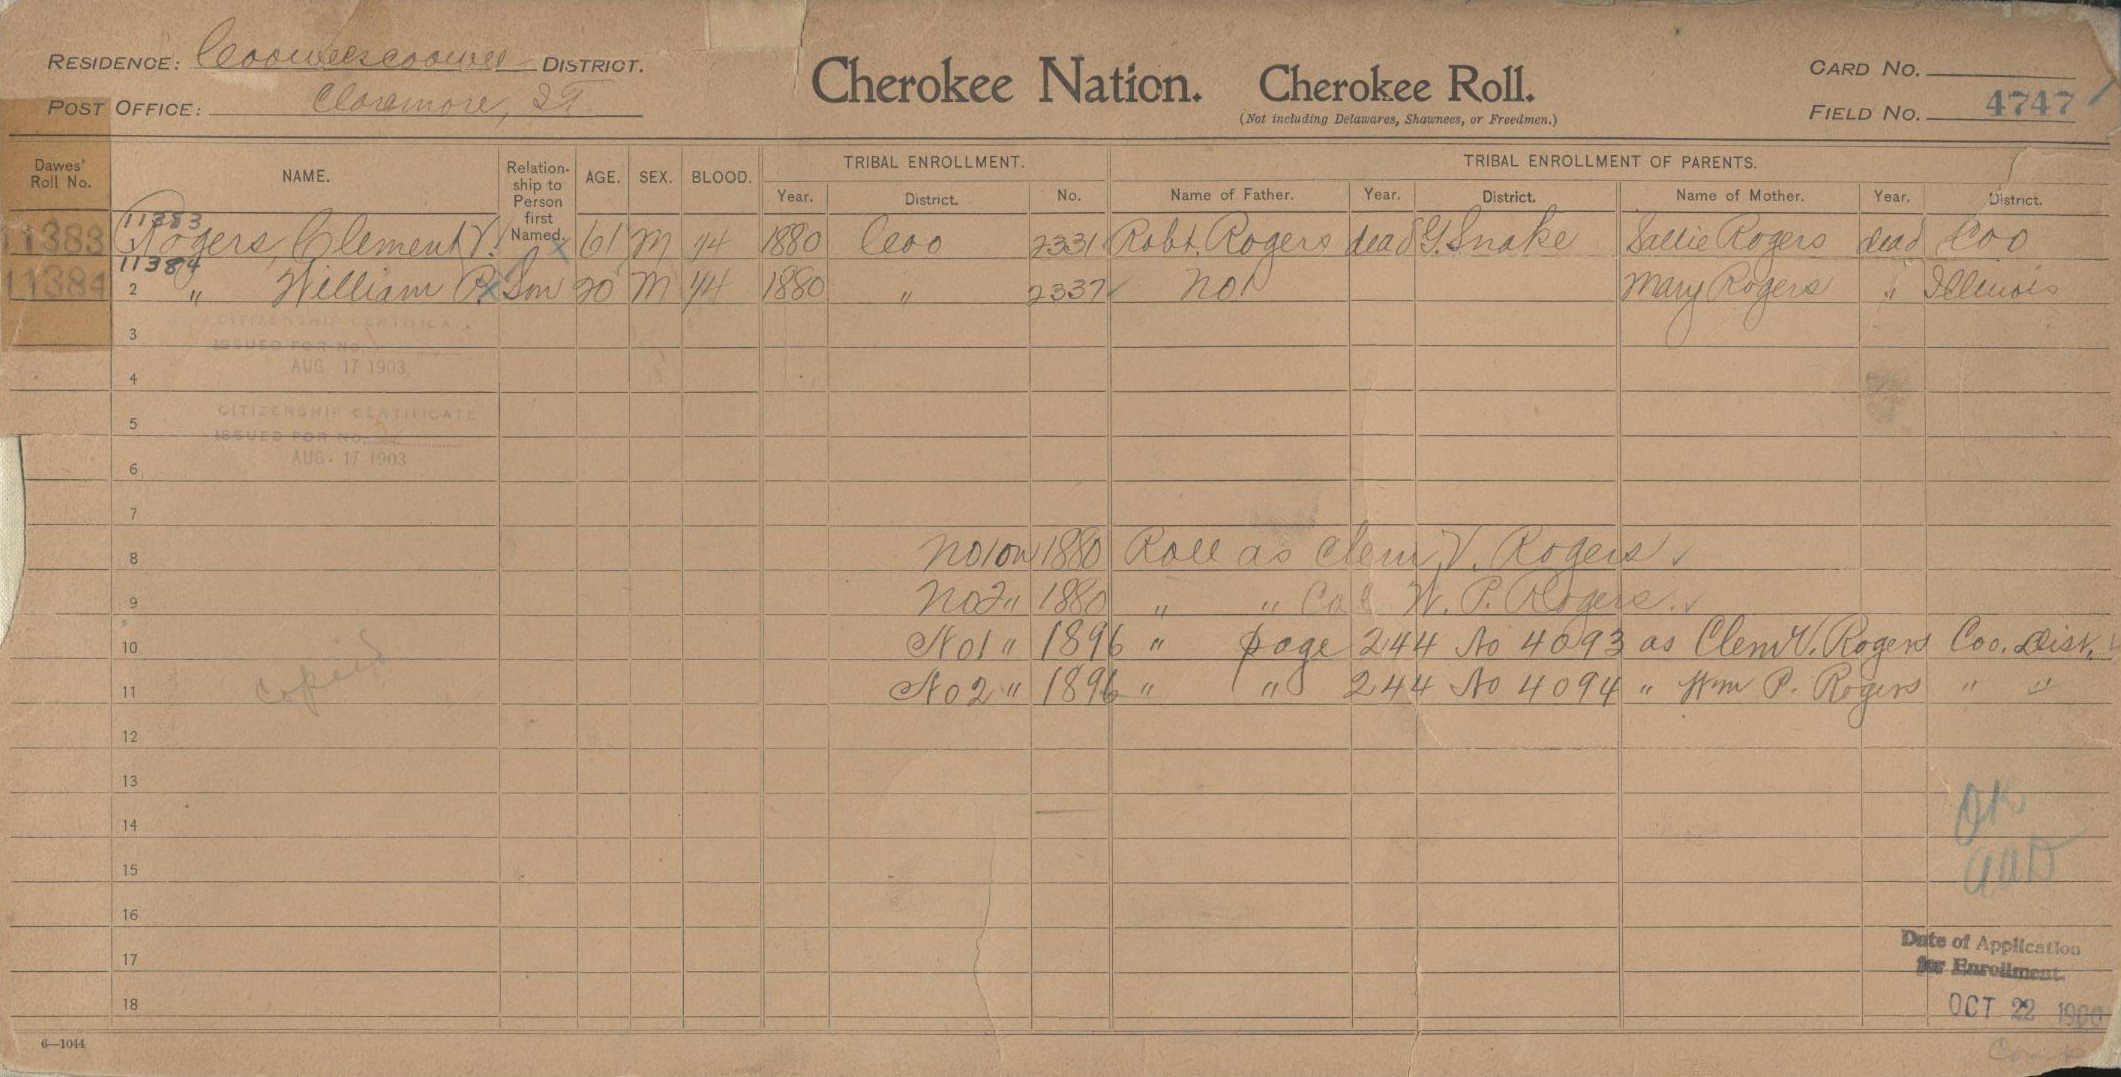 RESIDENCE: Cooweescoowee DISTRICT.
POST OFFICE: Claremore, IT
Cherokee Nation. Cherokee Roll.
(Not including Delawares, Shawnees, or Freedmen.)
CARD NO.
FIELD NO. 4747
Dawes' Roll No.
NAME.
Relationship to Person first Named.
AGE.
SEX.
BLOOD.
TRIBAL ENROLLMENT.
Year. District. No.
TRIBAL ENROLLMENT OF PARENTS.
Name of Father. Year. District. Name of Mother. Year. District.
11383
11383 1 Rogers, Clement V. 61 M 1/4 1880 Coo 2331 Robt. Rogers dead G. Snake Sallie Rogers dead Coo
11384
11384 2 " William P. Son 20 M 1/4 1880 " 2337 No 1 Mary Rogers " Illinois
CITIZENSHIP CERTIFICATE
3 ISSUED FOR NO.
AUG 17 1903
4
CITIZENSHIP CERTIFICATE
5 ISSUED FOR NO. 2
AUG. 17 1903
6
7
8 No 1 on 1880 Roll as Clem V. Rogers ✓
9 No 2 " 1880 " " Col W. P. Rogers. ✓
10 No 1 " 1896 " page 244 No 4093 as Clem V. Rogers Coo. Dist.
11 No 2 " 1896 " " 244 No 4094 " Wm P. Rogers " "
copied
12
13
OK
14
15
16
17
18
Date of Application
for Enrollment.
OCT 22 1900
6—1044